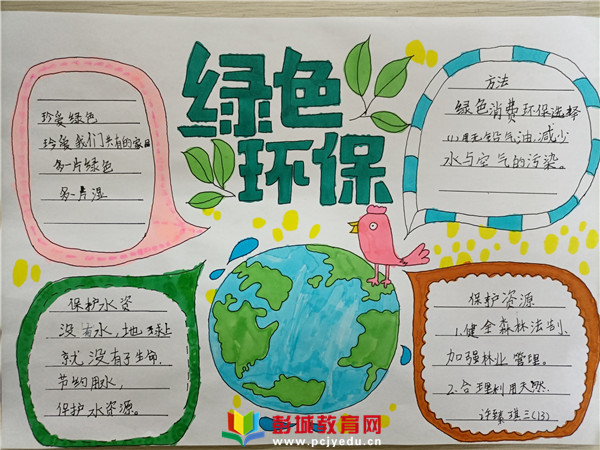 绿色
环保
珍爱绿色
珍爱我们共有的家园
多一片绿色
多一片湿
方法
绿色消费环保选择
(1)用无铅汽油,减少
水与空气的污染。
保护水资
没有水,地球上
就没有了生命,
节约用水,
保护水资源。
保护资源
1.健全森林法制,
加强林业管理。
2.合理利用天然
三(13)
彭城教育网
www.pcjyedu.cn